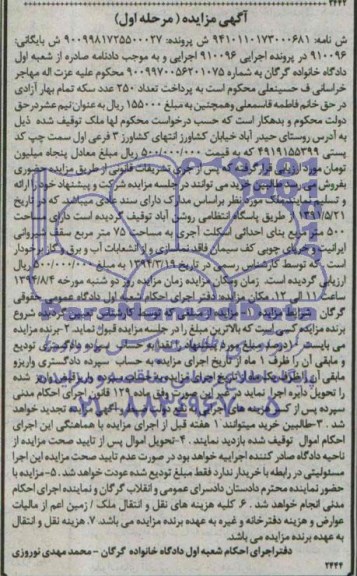 ۲۴۴۳
آگهی مزایده ( مرحله اول)
ش نامه: ۹۴۱۰۱۱۰۱۷۳۰۰۰۶۸۱ ش پرونده: ۹۰۰۹۹۸۱۷۲۵۵۰۰۰۲۷ ش بایگانی:
۹۱۰۰۹۶ در پرونده اجرایی ۹۱۰۰۹۶ اجرایی و به موجب دادنامه صادره از شعبه اول
دادگاه خانواده گرگان به شماره ۹۰۰۹۹۷۰۰۵۶۲۰۱۰۷۵ محکوم علیه عزت اله مهاجر
خراسانی ف حسینعلی محکوم است به پرداخت تعداد ۲۵۰ عدد سکه تمام بهار آزادی
در حق خانم فاطمه قاسمعلی وهمچنین به مبلغ ۱۵۵۰۰۰ ریال به عنوان نیم عشر در حق
دولت محکوم و بدهکار است که حسب درخواست محکوم لها ملک توقیف شده ذیل
به آدرس روستای حیدر آباد خیابان کشاورز انتهای کشاورز ۳ فرعی اول سمت چپ کد
پستی ۴۹۱۹۱۵۵۳۹۹ که به قیمت ۵۰۰/۰۰۰/۰۰۰ ریال مبلغ معادل پنجاه میلیون
تومان مورد ارزیابی قرار گرفته که پس از جری تشریفات قانونی از طریق مزایده حضوری
بفروش می رسد طالبین خرید می توانند در جلسه مزایده شرکت و پیشنهاد خود را ارائه
و تسلیم نمایند ملک مورد نظر براساس مدارک دارای سند عادی می باشد که در تاریخ
۱۳۹۱/۵/۲۱ از طریق پاسگاه انتظامی روشن آباد توقیف گردیده است دارای مساحت
۵۰۰ متر مربع بنای احداثی اسکلت آجری به مساحت ۷۵ متر مربع سقف شیروانی
ایرانیت و خرپای چوبی کف سیمان فاقد نماسازی و از انشعابات آب و برق و گاز برخوردار
است که توسط کارشناس رسمی در تاریخ ۱۳۹۴/۲/۱۹ به مبلغ ۵۰۰/۰۰۰/۰۰۰ ریال
ارزیابی گردیده است. زمان ومکان مزایده زمان مزایده روز دو شنبه مورخه ۱۳۹۴/۸/۴
ساعت ۱۱ الی ۱۲ مکان مزایده: دفتر اجرای احکام شعبه اول دادگاه عمومی حقوقی
گرگان شرایط مزایده: ۱- مزایده از مبلغی که توسط کارشناس معین گردیده شروع
برنده مزایده کسی است که بالاترین مبلغ را در جلسه مزایده قبول نماید. ۲- برنده مزایده
می بایست ۱۰ درصد مبلغ مورد پیشنهاد را نقدا به حساب سپرده دادگستری تودیع
و مابقی آن را ظرف ۱ ماه از تاریخ اجرای مزایده به حساب سپرده دادگستری واریز و
را تحویل دایره اجرا نماید در غیر این صورت وفق ماده ۱۲۹ قانون اجرای احکام مدنی
سپرده پس از کسر هزینه های
شد. ۳- طالبین خرید میتوانند ۱ هفته قبل از اجرای مزایده با هماهنگی این اجرای
احکام اموال توقیف شده بازدید نمایند. ۴- تحویل اموال پس از تایید صحت مزایده از
ناحیه دادگاه صادر کننده اجراییه خواهد بود در صورت عدم تایید صحت مزایده این اجرا
مسئولیتی در رابطه با خریدار ندارد فقط مبلغ تودیع شده عودت خواهد شد. ۵- مزایده با
حضور نماینده محترم دادستان دادسرای عمومی و انقلاب گرگان و نماینده اجرای احکام
مدنی انجام خواهد شد. ۶. کلیه هزینه های نقل و انتقال ملک / زمین اعم از مالیات
عوارض و هزینه دفترخانه و غیره به عهده برنده مزایده می باشد. ۷. هزینه نقل و انتقال
به عهده برنده مزایده می باشد.
دفتر اجرای احکام شعبه اول دادگاه خانواده گرگان - محمد مهدی نوروزی
۲۴۴۴